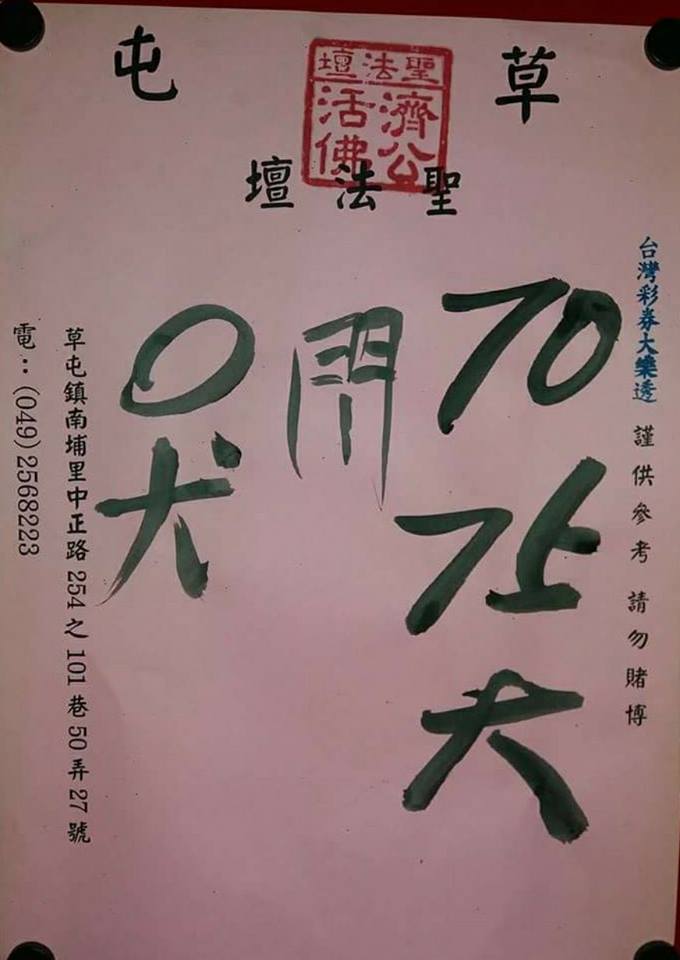 草屯
聖法壇
濟公
活佛
聖法壇
台灣彩券大樂透 謹供參考 請勿賭博
70
大
0
犬
草屯鎮南埔里中正路254之101巷50弄27號
電：(049)2568223